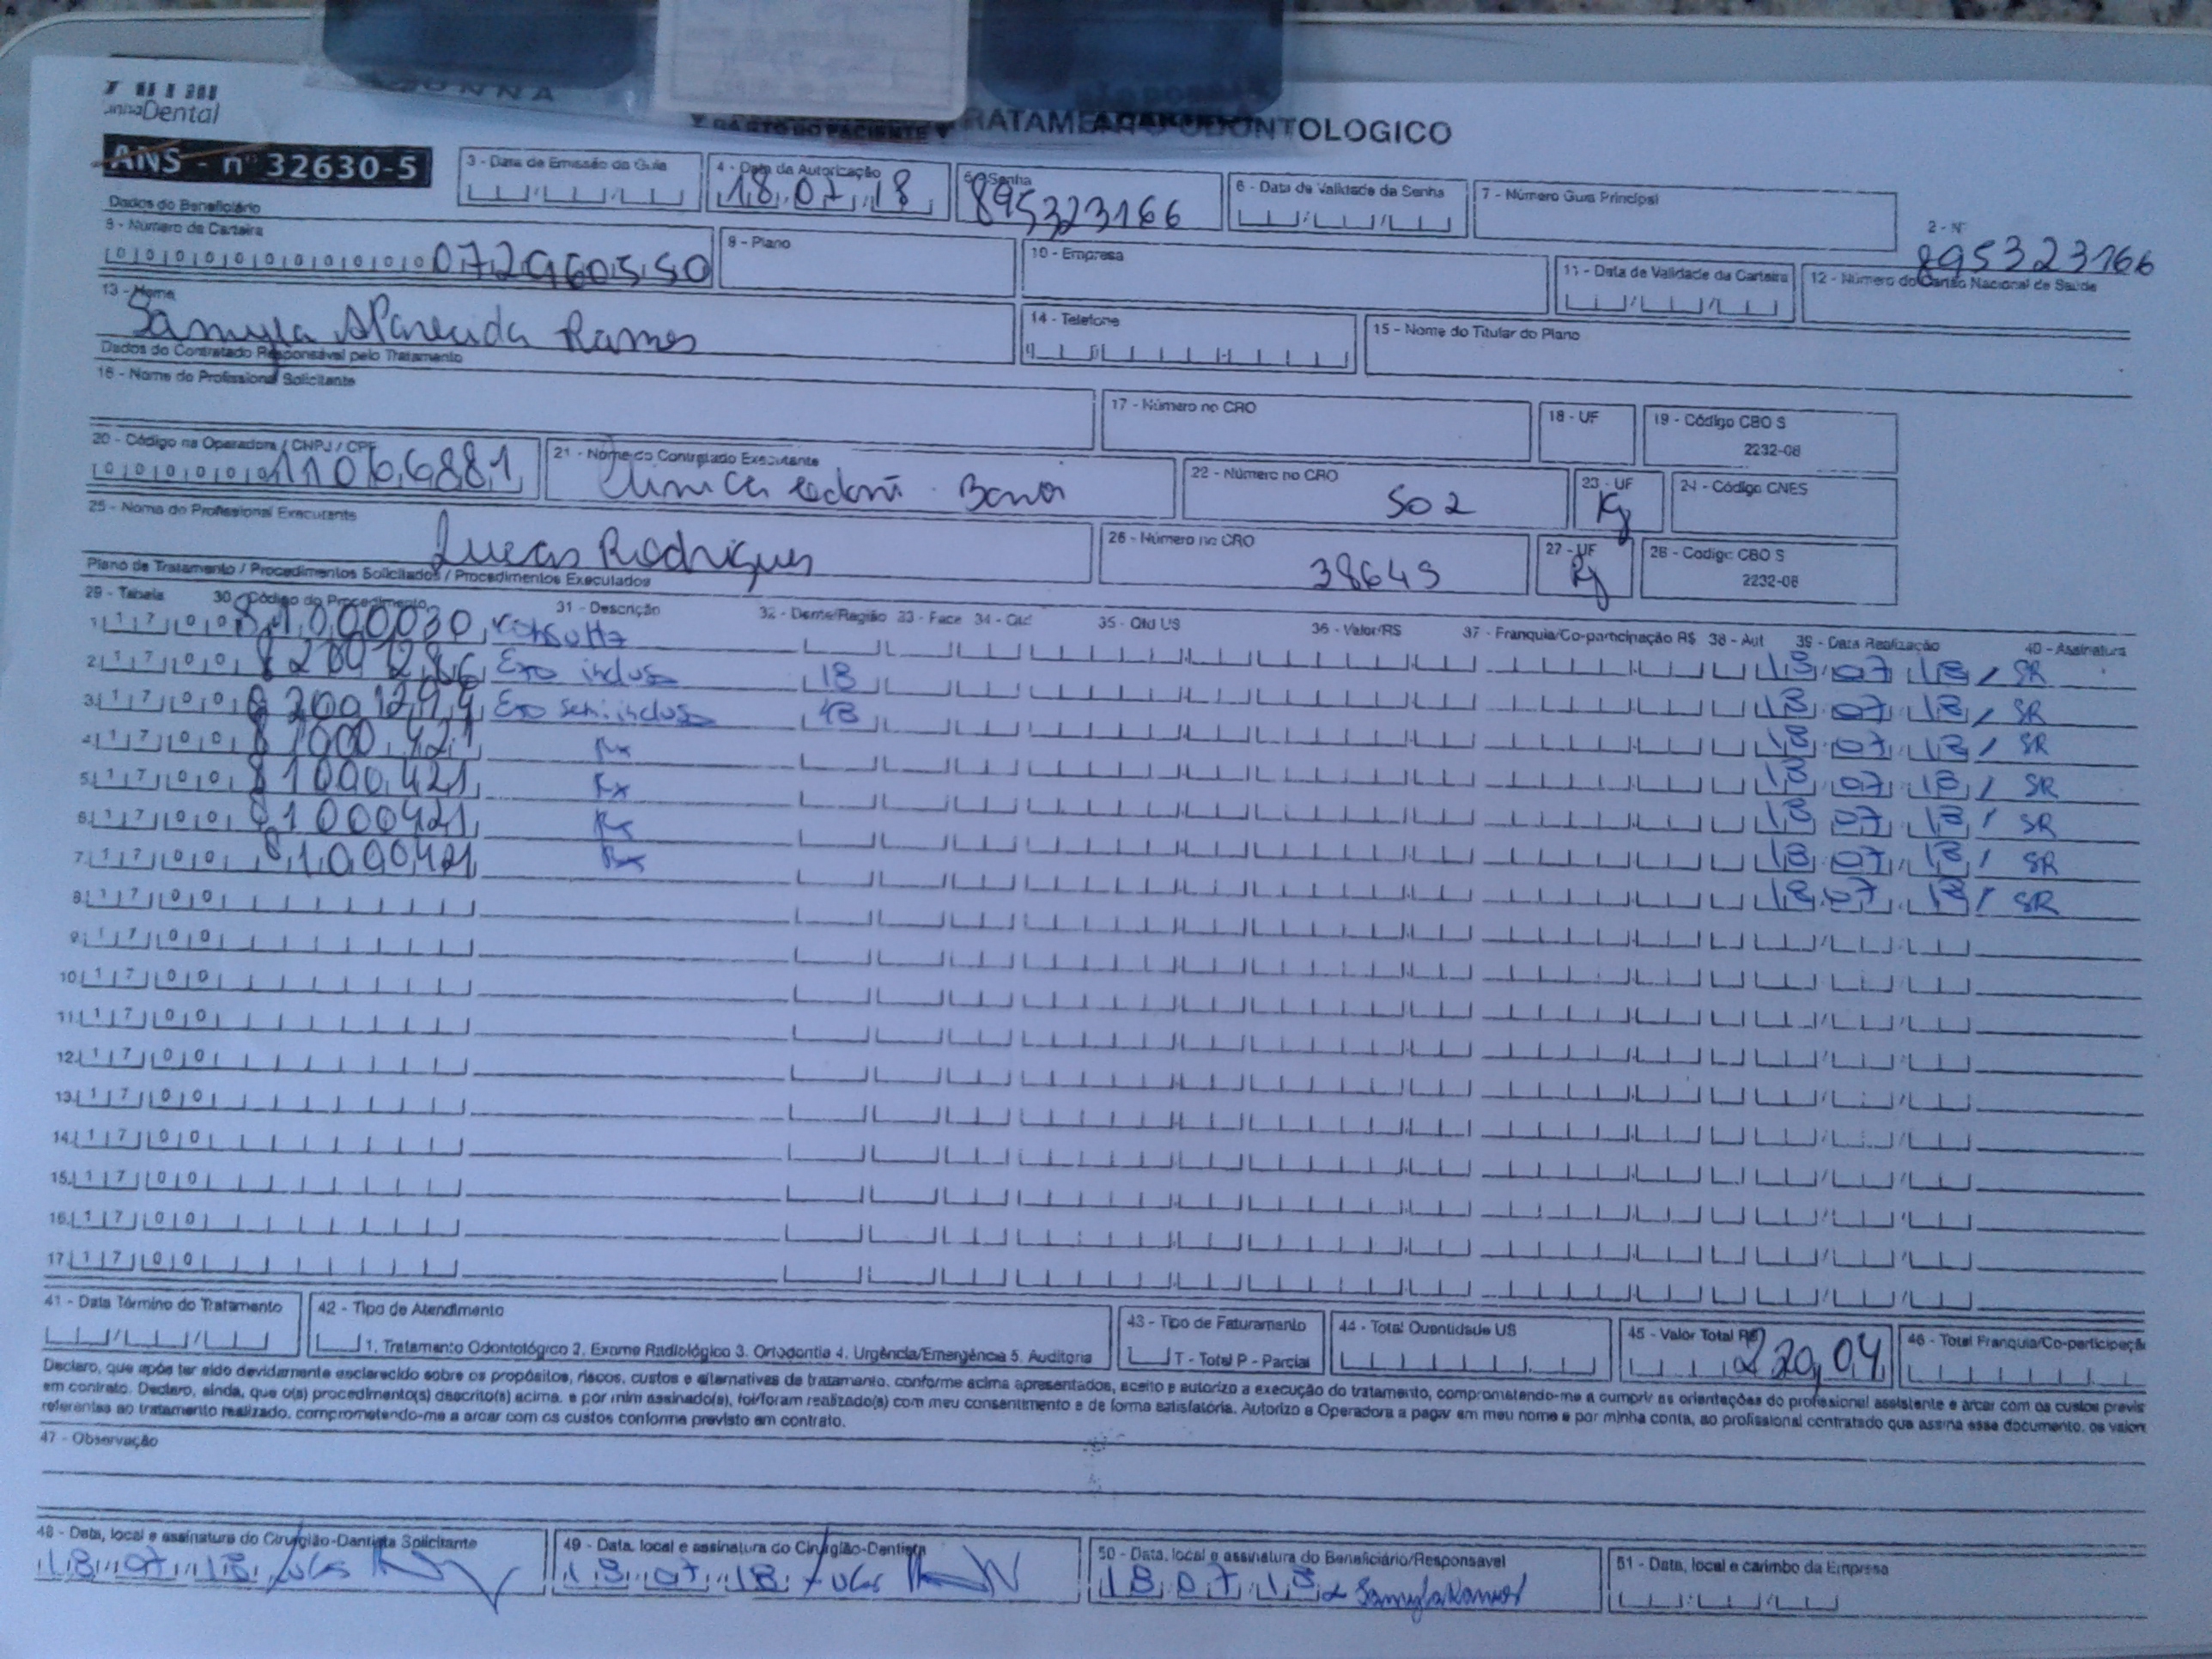 Dental
ODONTOLOGICO
ANS - nº 32630-5
3 - Data de Emissão da Guia
4 - Data da Autorização
18 07 18
5 - Senha
895323166
6 - Data de Validade da Senha
7 - Número Guia Principal
2 - Nº
895323166
Dados do Beneficiário
8 - Número da Carteira
0 0 0 0 0 0 0 0 0 0 0 072960550
9 - Plano
10 - Empresa
11 - Data de Validade da Carteira
12 - Número do Cartão Nacional de Saúde
13 - Nome
Samyla Aparecida Ramos
14 - Telefone
15 - Nome do Titular do Plano
Dados do Contratado Responsável pelo Tratamento
16 - Nome do Profissional Solicitante
17 - Número no CRO
18 - UF
19 - Código CBO S
2232-08
20 - Código na Operadora / CNPJ / CPF
0 0 0 0 0 0 11066881
21 - Nome do Contratado Executante
22 - Número no CRO
502
23 - UF
RJ
24 - Código CNES
25 - Nome do Profissional Executante
Lucas Rodrigues
26 - Número no CRO
38649
27 - UF
RJ
28 - Código CBO S
2232-08
Plano de Tratamento / Procedimentos Solicitados / Procedimentos Executados
29 - Tabela 30 - Código do Procedimento 31 - Descrição 32 - Dente/Região 33 - Face 34 - Qtd 35 - Qtd US 36 - Valor/R$ 37 - Franquia/Co-participação R$ 38 - Aut 39 - Data Realização 40 - Assinatura
1 1 7 0 0 81000030 Consulta 18 07 18 / SR
2 1 7 0 0 82001286 Exo incluso 18 18 07 18 / SR
3 1 7 0 0 82001294 Exo semi incluso 48 18 07 18 / SR
4 1 7 0 0 81000421 Rx 18 07 18 / SR
5 1 7 0 0 81000421 Rx 18 07 18 / SR
6 1 7 0 0 81000421 Rx 18 07 18 / SR
7 1 7 0 0 81000421 Rx 18 07 18 / SR
8 1 7 0 0
9 1 7 0 0
10 1 7 0 0
11 1 7 0 0
12 1 7 0 0
13 1 7 0 0
14 1 7 0 0
15 1 7 0 0
16 1 7 0 0
17 1 7 0 0
41 - Data Término do Tratamento
42 - Tipo de Atendimento
1. Tratamento Odontológico 2. Exame Radiológico 3. Ortodontia 4. Urgência/Emergência 5. Auditoria
43 - Tipo de Faturamento
T - Total P - Parcial
44 - Total Quantidade US
45 - Valor Total R$
220,04
46 - Total Franquia/Co-participaçã
Declaro, que após ter sido devidamente esclarecido sobre os propósitos, riscos, custos e alternativas de tratamento, conforme acima apresentados, aceito e autorizo a execução do tratamento, comprometendo-me a cumprir as orientações do profissional assistente e arcar com os custos previs
em contrato. Declaro, ainda, que o(s) procedimento(s) descrito(s) acima, e por mim assinado(s), foi/foram realizado(s) com meu consentimento e de forma satisfatória. Autorizo a Operadora a pagar em meu nome e por minha conta, ao profissional contratado que assina esse documento, os valore
referentes ao tratamento realizado, comprometendo-me a arcar com os custos conforme previsto em contrato.
47 - Observação
48 - Data, local e assinatura do Cirurgião-Dentista Solicitante
18 07 18
49 - Data, local e assinatura do Cirurgião-Dentista
18 07 18
50 - Data, local e assinatura do Beneficiário/Responsável
18 07 18 Samyla Ramos
51 - Data, local e carimbo da Empresa